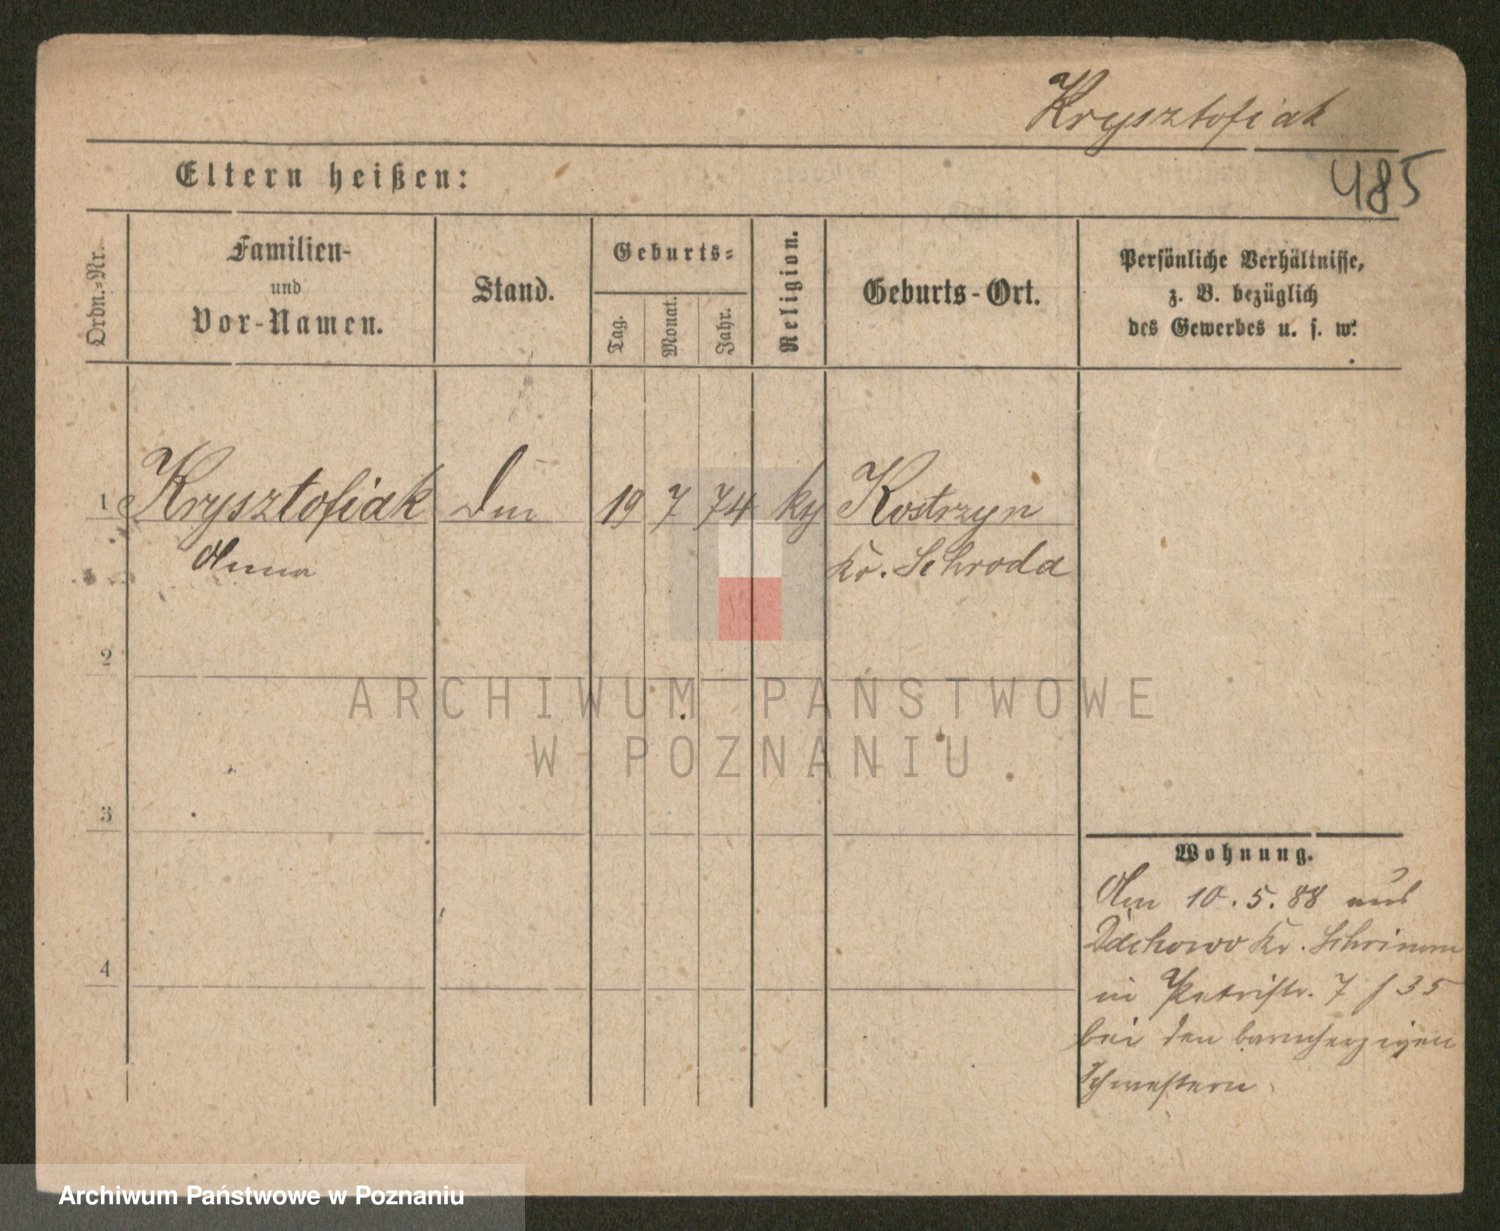 Krysztofiak
485
Eltern heißen:
Ordn.-Nr.
Familien-
und
Vor-Namen.
Stand.
Geburts-
Tag.
Monat.
Jahr.
Religion.
Geburts-Ort.
Persönliche Verhältnisse,
z. B. bezüglich
des Gewerbes u. s. w.
1 Krysztofiak 19 7 74 Kostrzyn
Anna Kr. Schroda
2
3
4
Wohnung.
Am 10. 5. 88 aus
Kr. Schrimm
in Petristr. 7 35
bei den barmherzigen
Schwestern
ARCHIWUM PAŃSTWOWE
W POZNANIU
Archiwum Państwowe w Poznaniu